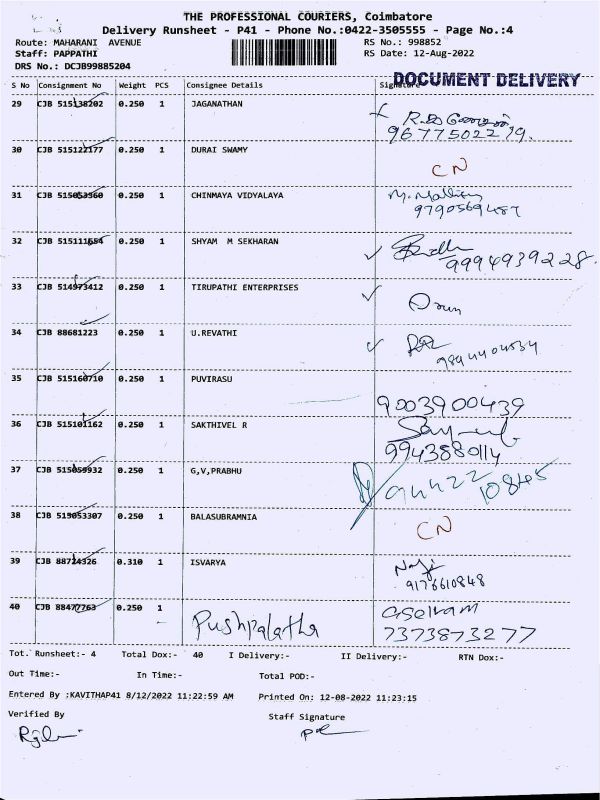 THE PROFESSIONAL COURIERS, Coimbatore
Delivery Runsheet - P41 - Phone No.:0422-3505555 - Page No.:4
Route: MAHARANI AVENUE RS No.: 998852
Staff: PAPPATHI RS Date: 12-Aug-2022
DRS No.: DCJB99885204
DOCUMENT DELIVERY
S No Consignment No Weight PCS Consignee Details Signature
29 CJB 515138202 0.250 1 JAGANATHAN
9677502219.
30 CJB 515122177 0.250 1 DURAI SWAMY
CN
31 CJB 515053360 0.250 1 CHINMAYA VIDYALAYA
9790569487
32 CJB 515111654 0.250 1 SHYAM M SEKHARAN
9994939228.
33 CJB 514973412 0.250 1 TIRUPATHI ENTERPRISES
34 CJB 88681223 0.250 1 U.REVATHI
35 CJB 515160710 0.250 1 PUVIRASU
9003900439
36 CJB 515101162 0.250 1 SAKTHIVEL R
9943880114
37 CJB 515059932 0.250 1 G,V,PRABHU
94422 10845
38 CJB 515053307 0.250 1 BALASUBRAMNIA
CN
39 CJB 88724326 0.310 1 ISVARYA
9176610848
40 CJB 88477763 0.250 1 Pushpalatha
7373873277
Tot. Runsheet:- 4 Total Dox:- 40 I Delivery:- II Delivery:- RTN Dox:-
Out Time:- In Time:- Total POD:-
Entered By :KAVITHAP41 8/12/2022 11:22:59 AM Printed On: 12-08-2022 11:23:15
Verified By Staff Signature